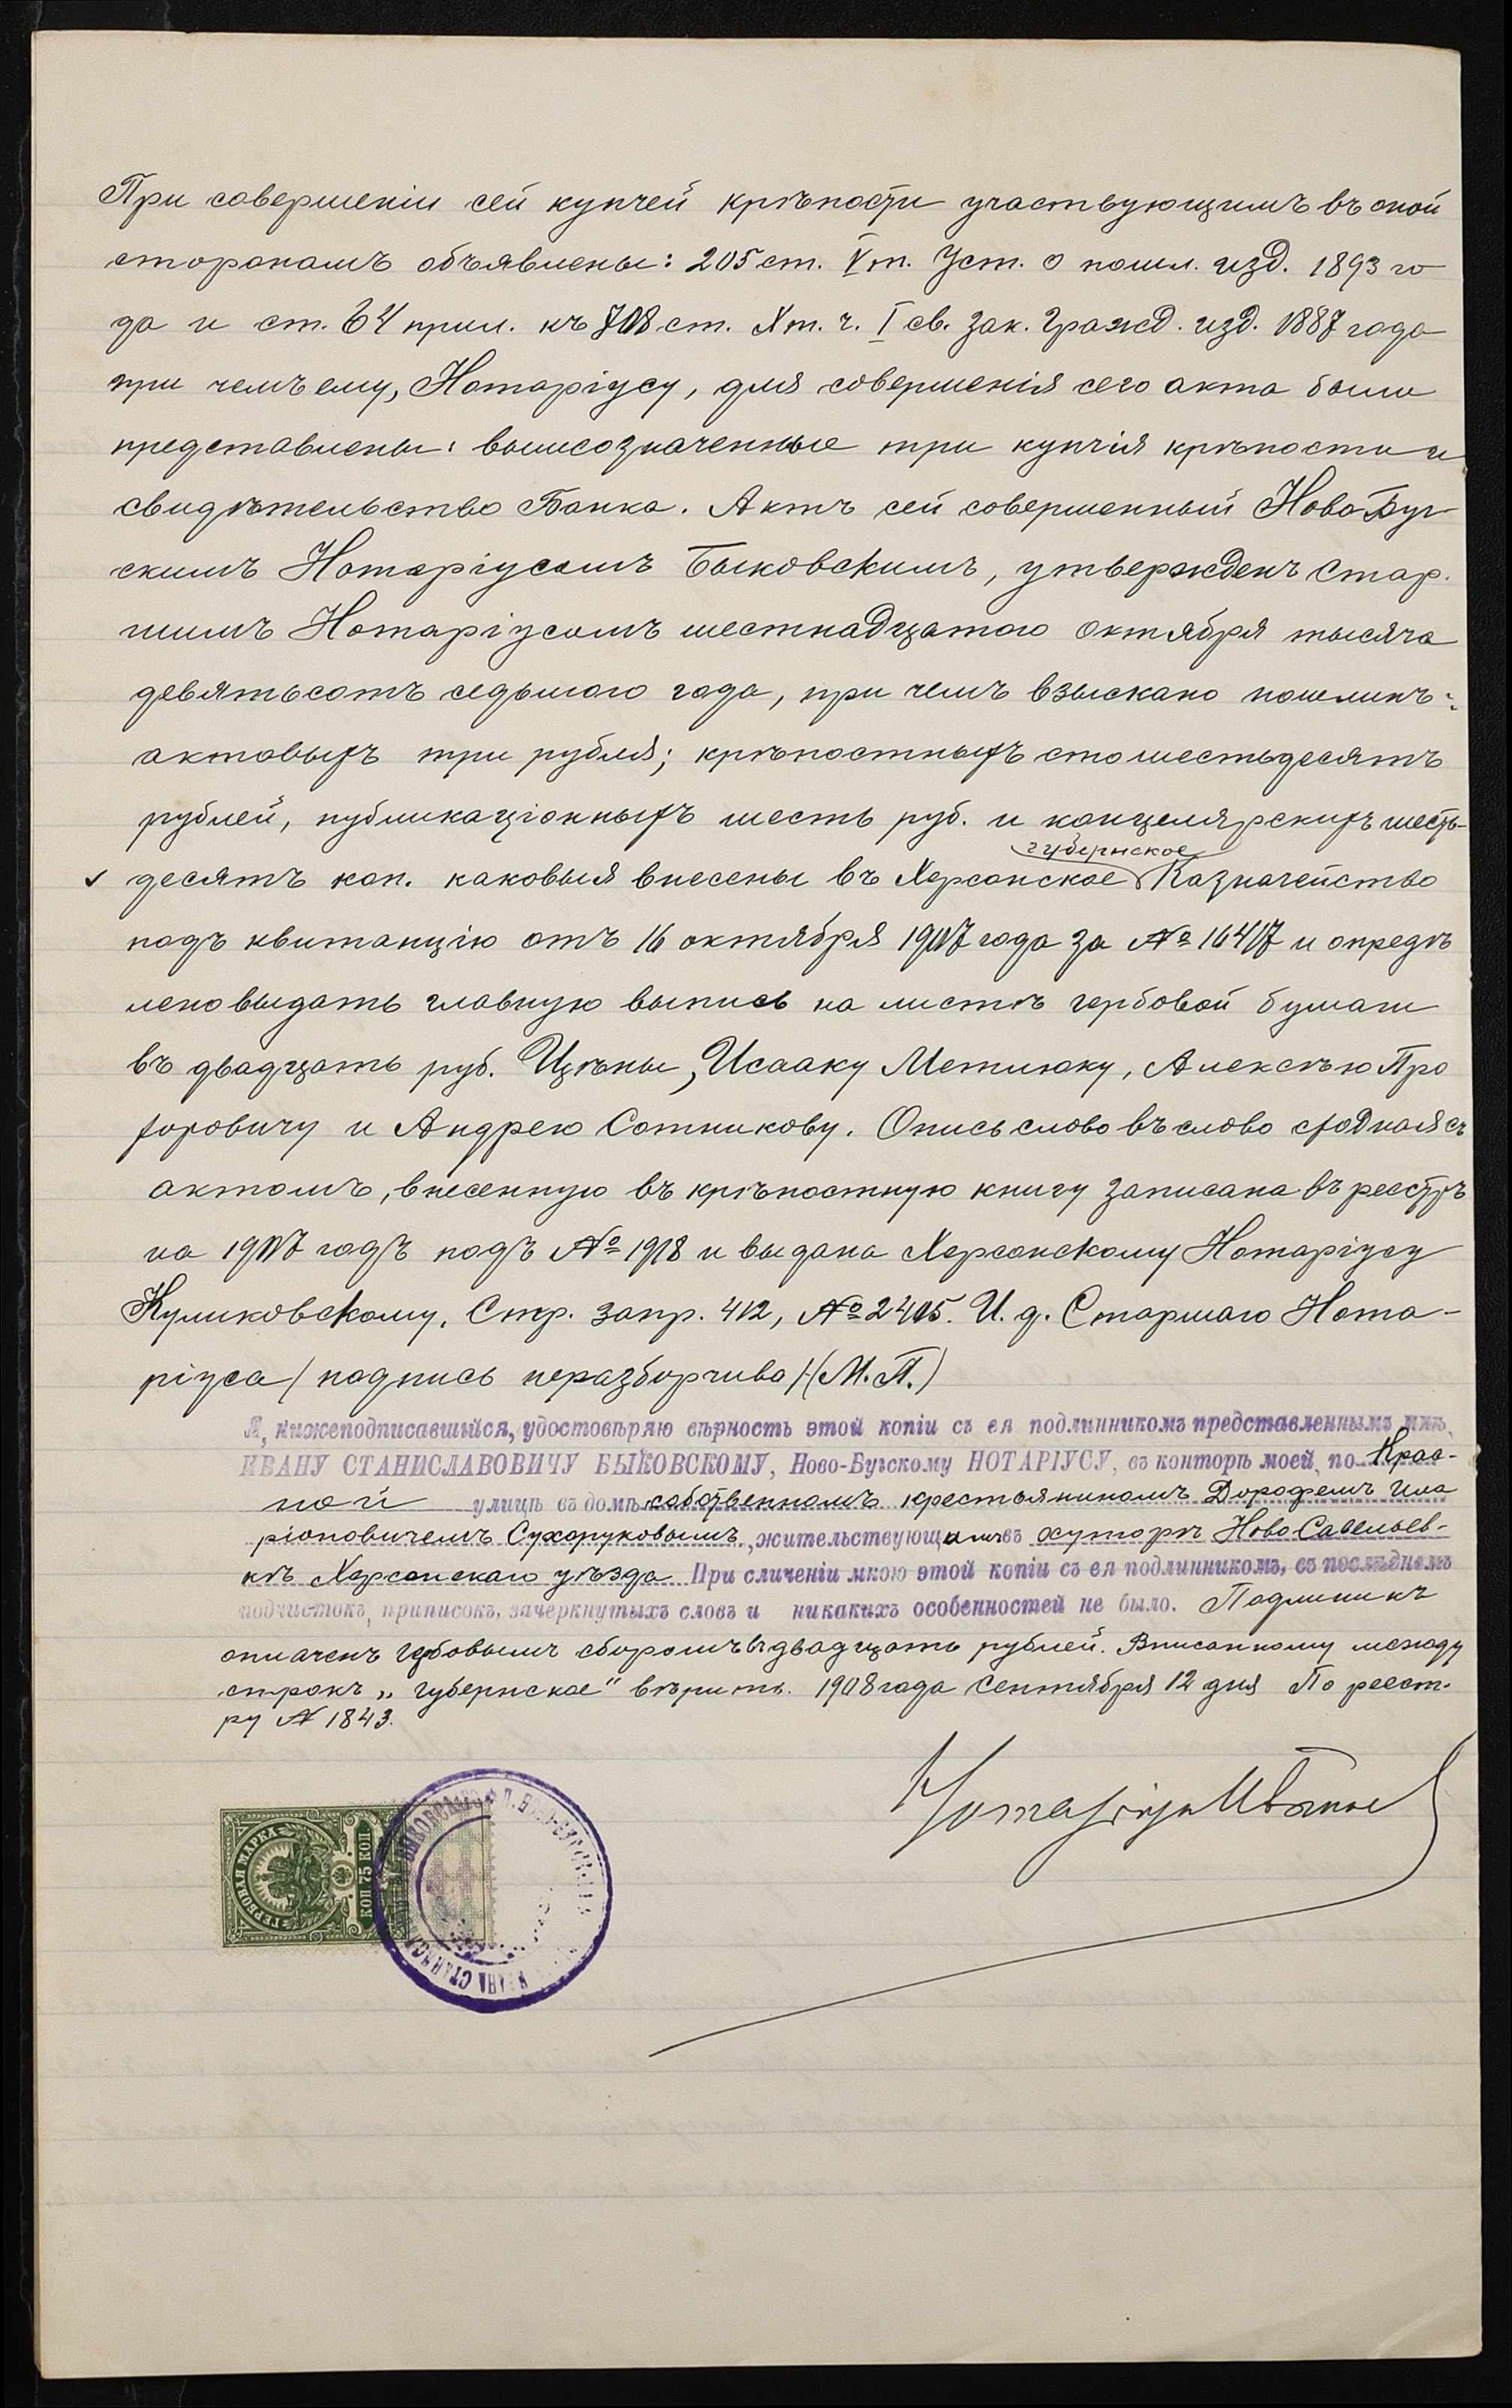 При совершеніи сей купчей крѣпости участвующимъ въ оной
сторонамъ объявлены: 205 ст. V т. Уст. о пошл. изд. 1893 го
да и ст. 64 прил. къ 708 ст. X т. ч. I св. зак. Гражд. изд. 1887 года
при чемъ ему, Нотаріусу, для совершенія сего акта были
представлены: вышеозначенные три купчія крѣпости и
свидѣтельство Банка. Актъ сей совершенный Ново-Буг
скимъ Нотаріусомъ Быковскимъ, утвержденъ Стар.
шимъ Нотаріусомъ шестнадцатого Октября тысяча
девятьсотъ седьмого года, при чемъ взыскано пошлинъ:
актовыхъ три рубля; крѣпостныхъ сто шестьдесятъ
рублей, публикаціонныхъ шесть руб. и канцелярскихъ шесть-
губернское
десятъ коп. каковыя внесены въ Херсонское Казначейство
подъ квитанцію отъ 16 октября 1907 года за № 16407 и опредѣ
лено выдать главную выпись на листѣ гербовой бумаги
въ двадцать руб. Цѣны, Исааку Метлюку, Алексѣю Про
хоровичу и Андрею Сотникову. Опись слово въ слово сходная съ
актомъ, внесенную въ крѣпостную книгу записана въ реестръ
на 1907 годъ подъ № 1918 и выдана Херсонскому Нотаріусу
Куликовскому. Стр. запр. 412, № 2405. И. д. Старшаго Нота-
ріуса /подпись неразборчива/ (М. П.)
Я, нижеподписавшійся, удостовѣряю вѣрность этой копіи съ ея подлинникомъ представленнымъ мнѣ,
ИВАНУ СТАНИСЛАВОВИЧУ БЫКОВСКОМУ, Ново-Бугскому НОТАРІУСУ, въ конторѣ моей, по Крас-
ной улицѣ въ домѣ собственномъ крестьяниномъ Дорофеемъ Ила
ріоновичемъ Сухоруковымъ, жительствующимъ въ хуторѣ Ново-Савельев-
кѣ Херсонскаго уѣзда При сличеніи мною этой копіи съ ея подлинникомъ, въ послѣднемъ
подчистокъ, приписокъ, зачеркнутыхъ словъ и никакихъ особенностей не было. Подлинникъ
оплаченъ гербовымъ сборомъ въ двадцать рублей. Вписанному между
строкъ „губернское" вѣрить. 1908 года Сентября 12 дня По реест-
ру № 1843.
Нотаріусъ
ГЕРБОВАЯ МАРКА
КОП 75 КОП